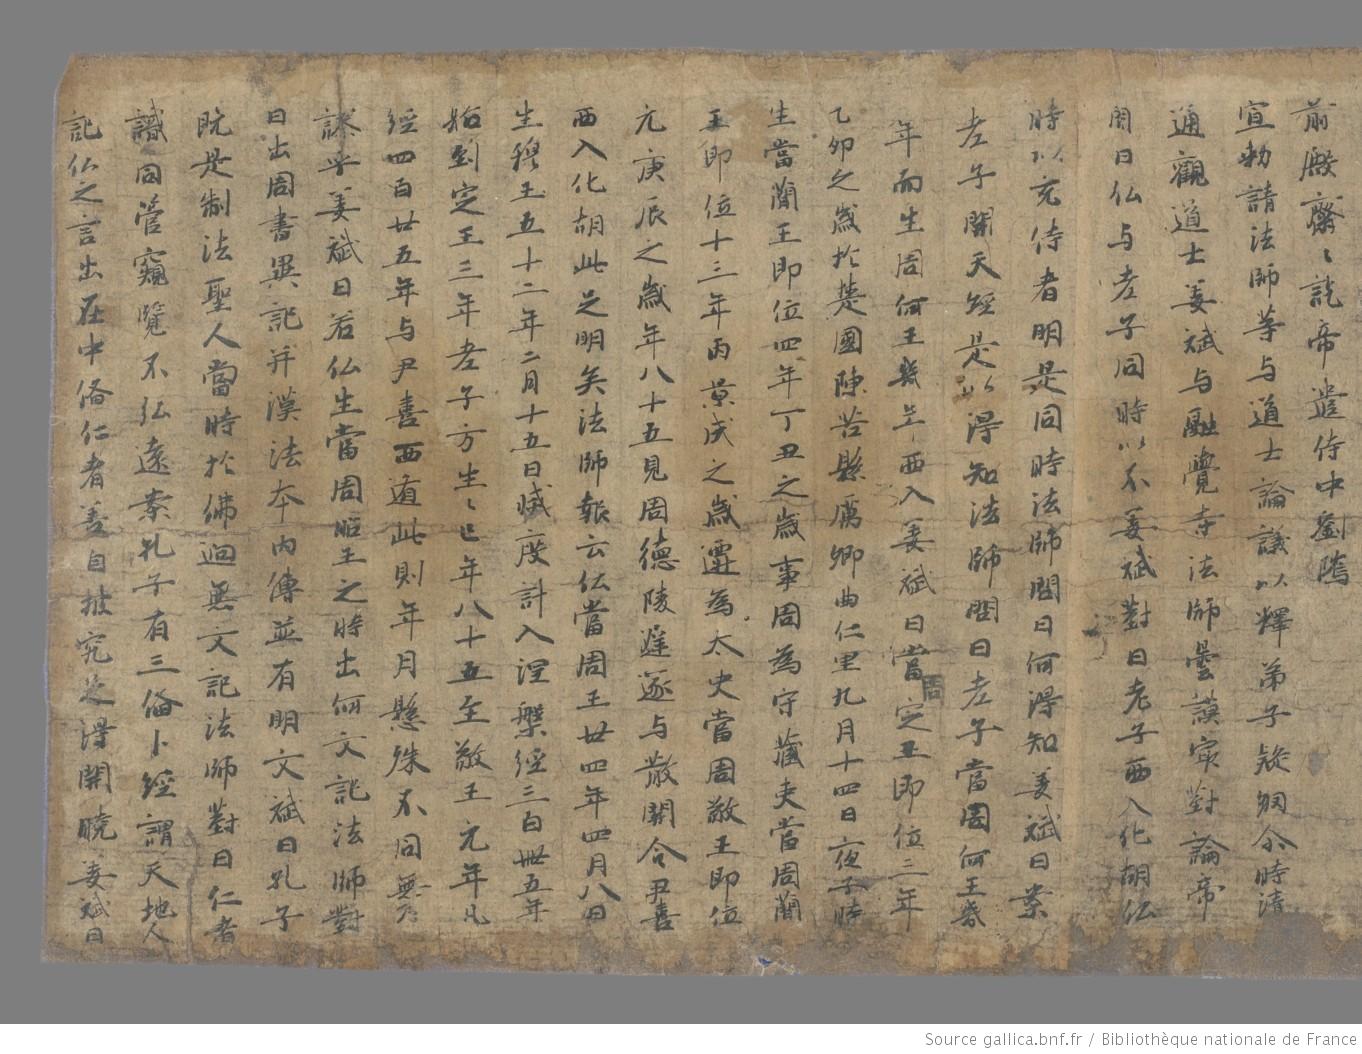 前殿齋〻訖帝遣侍中劉騰
宣勅請法師等与道士論議以釋弟子疑網令時清
通觀道士姜斌与融覺寺法師曇謨冣對論帝
問曰仏与老子同時以不姜斌對曰老子西入化胡仏
時以充侍者明是同時法師問曰何得知姜斌曰案
老子開天經是以得知法師問曰老子當周何王幾
年而生周何王幾年西入姜斌曰當周定王即位三年
乙卯之歲於楚國陳苦縣厲鄉曲仁里九月十四日夜子時
生當蕑王即位四年丁丑之歲事周為守藏吏當周蕑
王即位十三年丙景戌之歲遷為太史當周敬王即位
元庚辰之歲年八十五見周德陵遅遂与散關令尹喜
西入化胡此足明矣法師報云仏當周王廿四年四月八日
生穆王五十二年二月十五日滅度計入涅槃經三百卌五年
始到定王三年老子方生〻已年八十五至敬王元年凡
經四百廿五年与尹喜西遁此則年月懸殊不同無乃
謬乎姜斌曰若仏生當周昭王之時出何文記法師對
曰出周書異記并漢法本內傳並有明文斌曰孔子
既是制法聖人當時於佛迥無文記法師對曰仁者
識同管窺覽不弘遠案孔子有三俻卜經謂天地人
記仏之言出在中俻仁者善自披究足得開曉姜斌曰
Source gallica.bnf.fr / Bibliothèque nationale de France